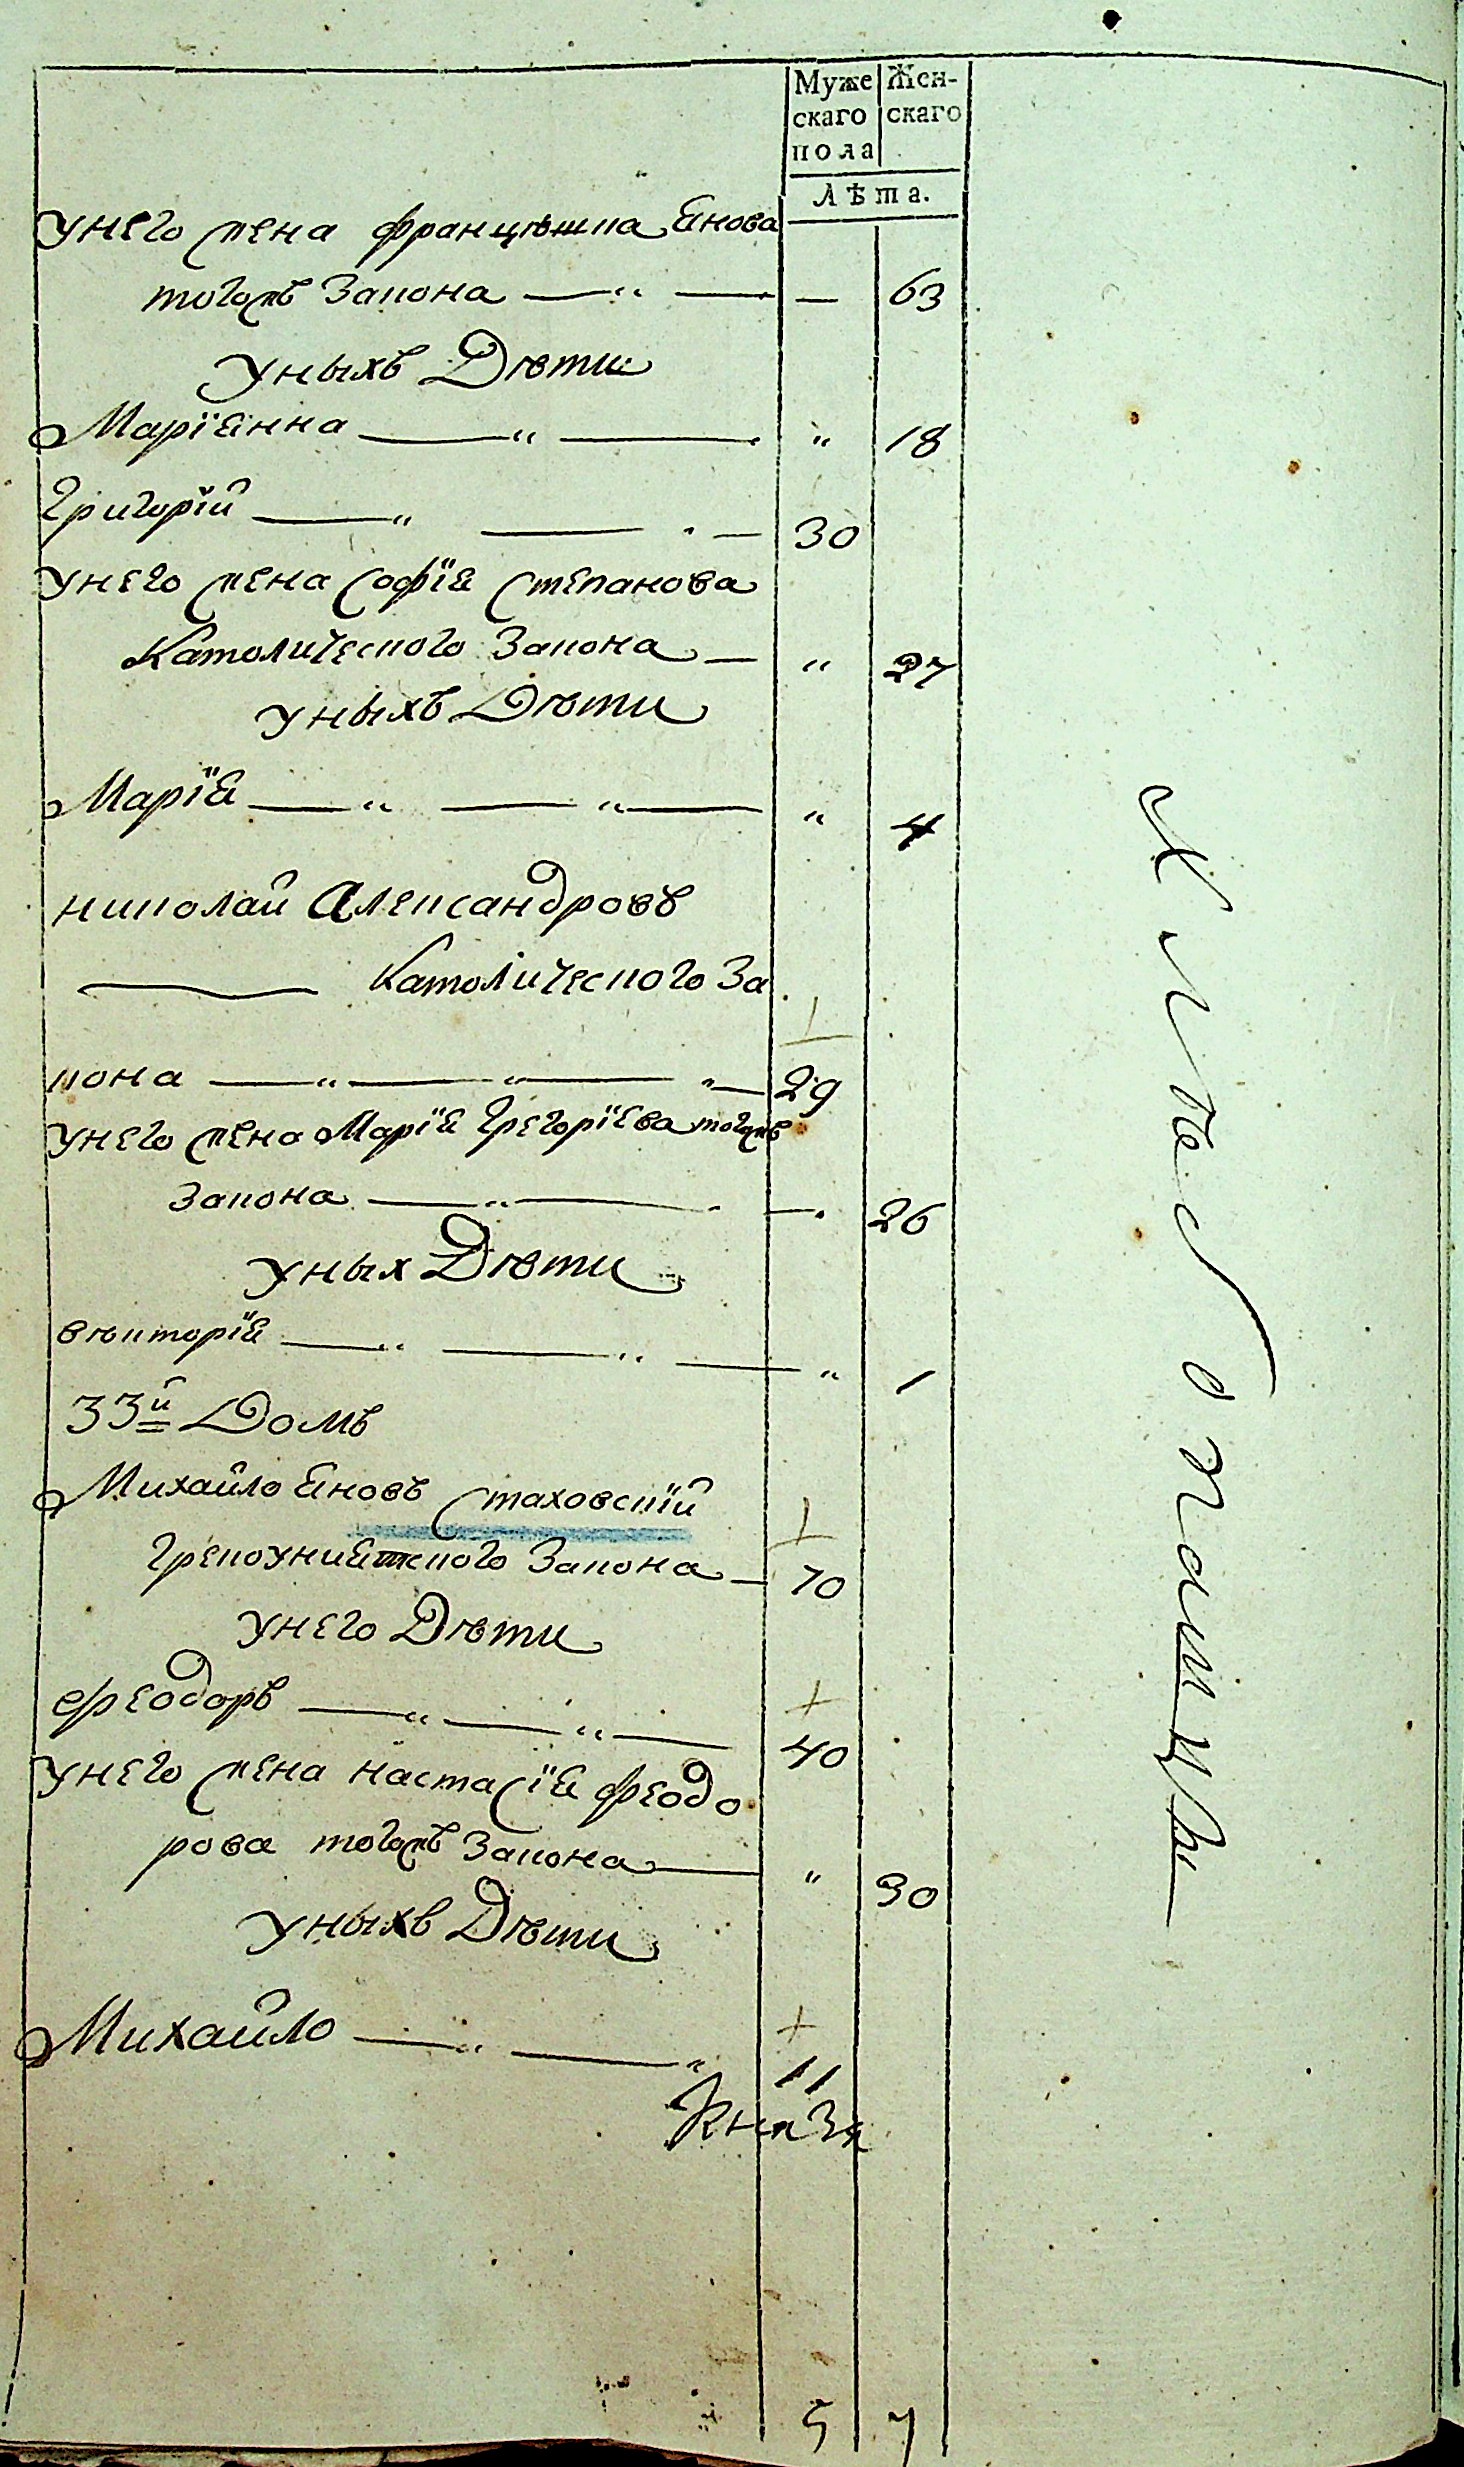 Муже Жен-
скаго скаго
пола
Лѣта.
унего жена францѣшка Янова
тогожъ Закона — 63
уныхъ Дѣти
Маріянна " 18
Григорій 30
унего жена Софія Степанова
Католического Закона " 27
уныхъ Дѣти
Марія " 4
николай Александровъ
Католического За
кона 29
унего жена Марія Грегоріева тогожъ
Закона — 26
уных Дѣти
вѣкторія " 1
33й Домъ
Михайло Яновъ Стаховскій
Грекоуниятского Закона 70
унего Дѣти
феодоръ 40
унего жена настасія феодо
рова тогожъ Закона " 30
уныхъ Дѣти
Михайло 11
Князя
5 7